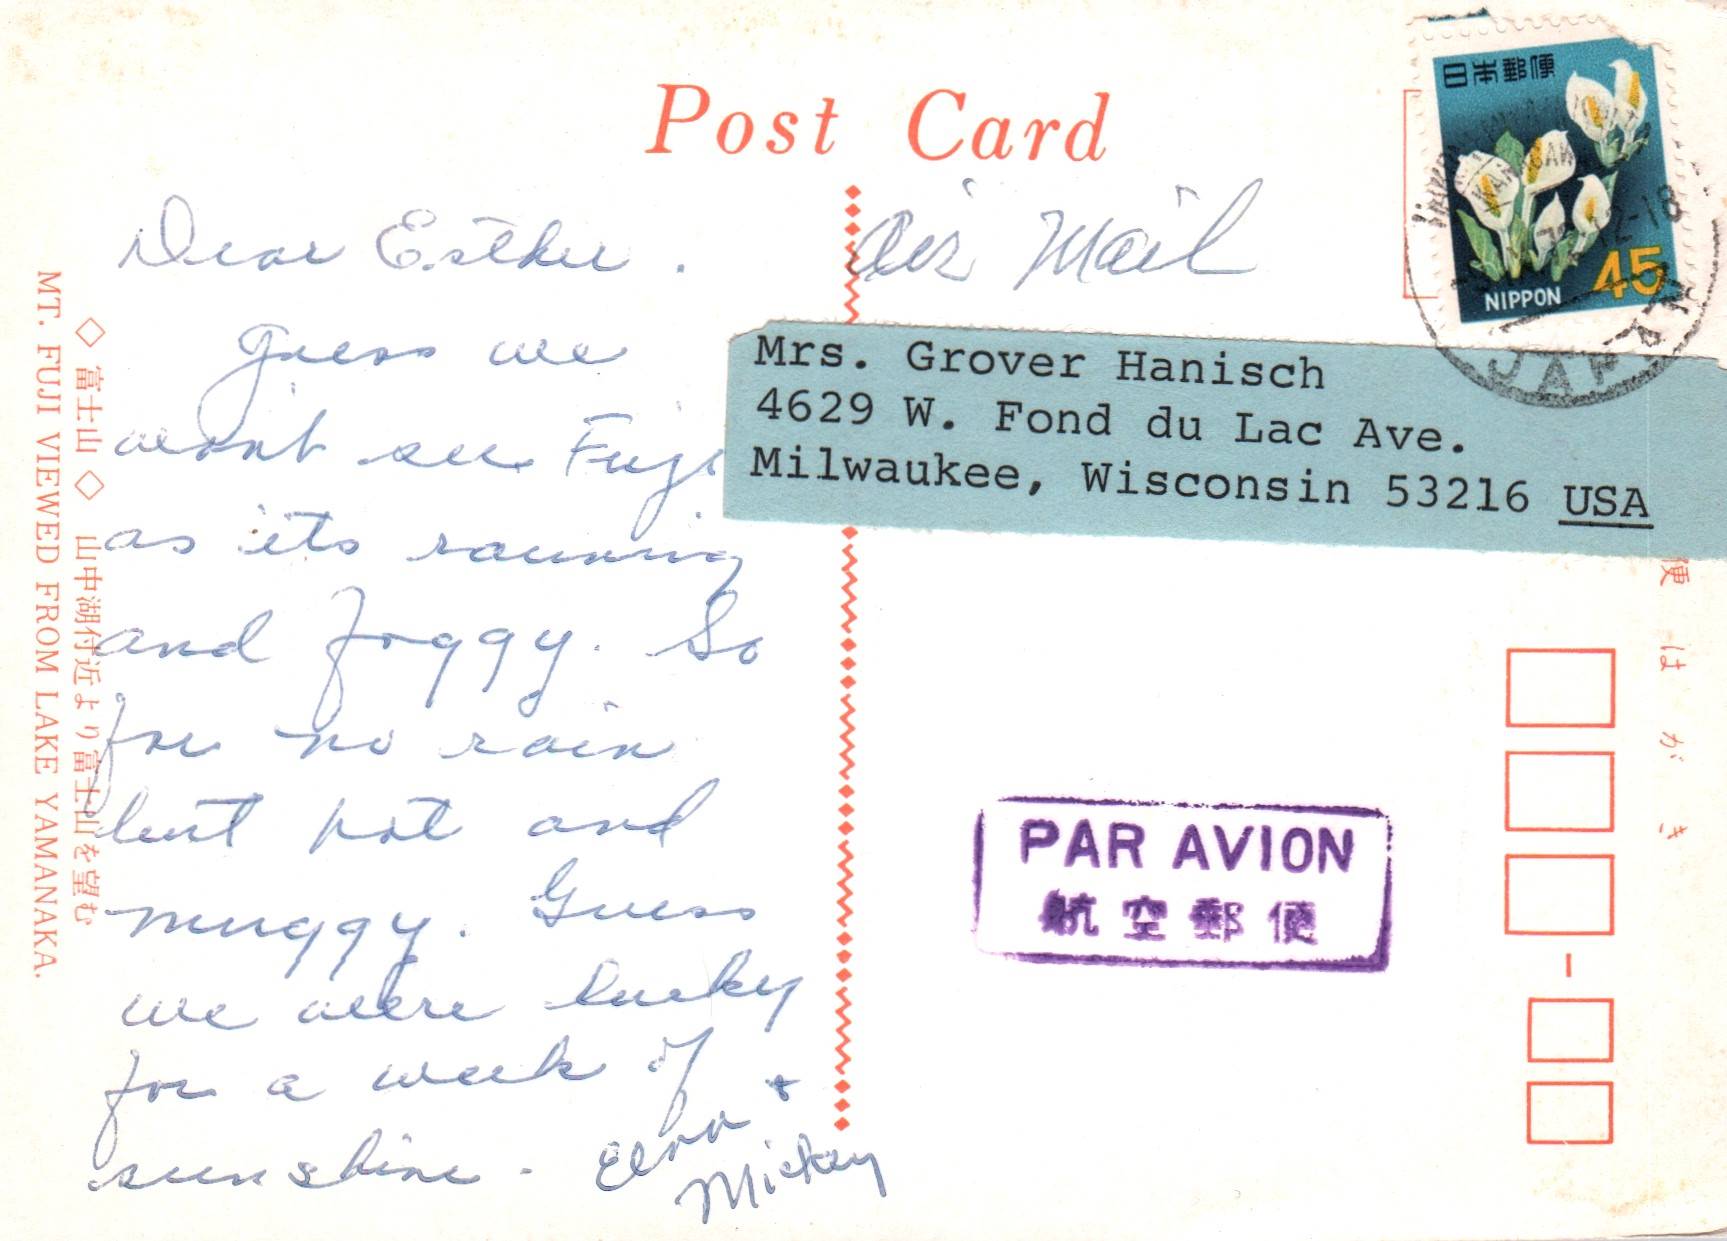 Post Card
日本郵便
NIPPON
45
12-18
JAPAN
Air Mail
Mrs. Grover Hanisch
4629 W. Fond du Lac Ave.
Milwaukee, Wisconsin 53216 USA
Dear Esther.
Guess we
won't see Fuji
as its raining
and foggy. So
far no rain
but hot and
muggy. Guess
we were lucky
for a week of
sunshine - Elna +
Mickey
◇ 富士山 ◇ 山中湖付近より富士山を望む
MT. FUJI VIEWED FROM LAKE YAMANAKA.
PAR AVION
航空郵便
便はがき